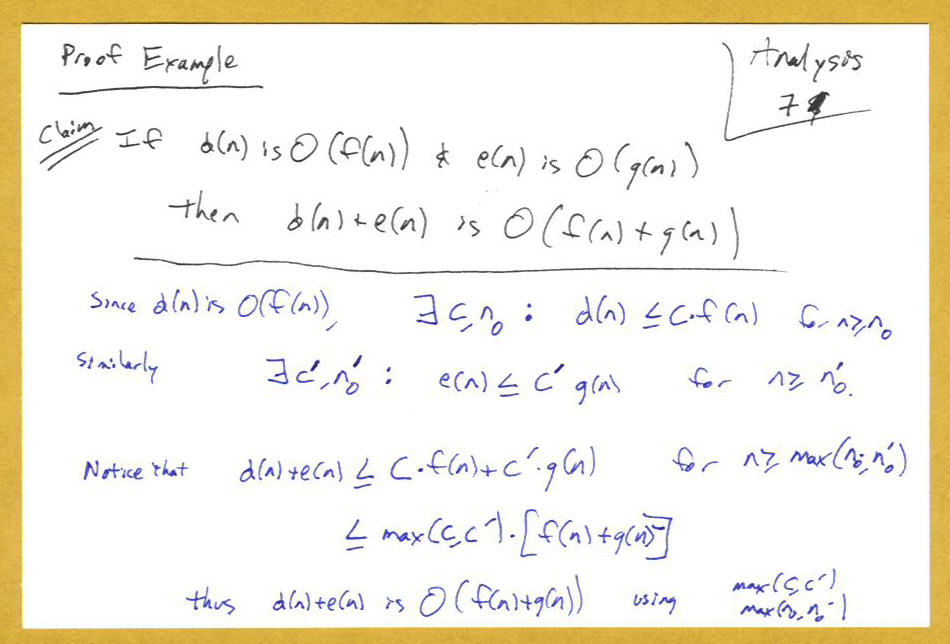 Proof Example
Analysis
7
Claim If d(n) is O(f(n)) & e(n) is O(g(n))
then d(n)+e(n) is O(f(n)+g(n))
Since d(n) is O(f(n)), ∃ c,n₀ : d(n) ≤ c·f(n) for n≥n₀
Similarly ∃ c',n₀' : e(n) ≤ c' g(n) for n≥ n₀'.
Notice that d(n)+e(n) ≤ c·f(n)+c'·g(n) for n≥ max(n₀,n₀')
≤ max(c,c')·[f(n)+g(n)]
thus d(n)+e(n) is O(f(n)+g(n)) using max(c,c')
max(n₀,n₀')